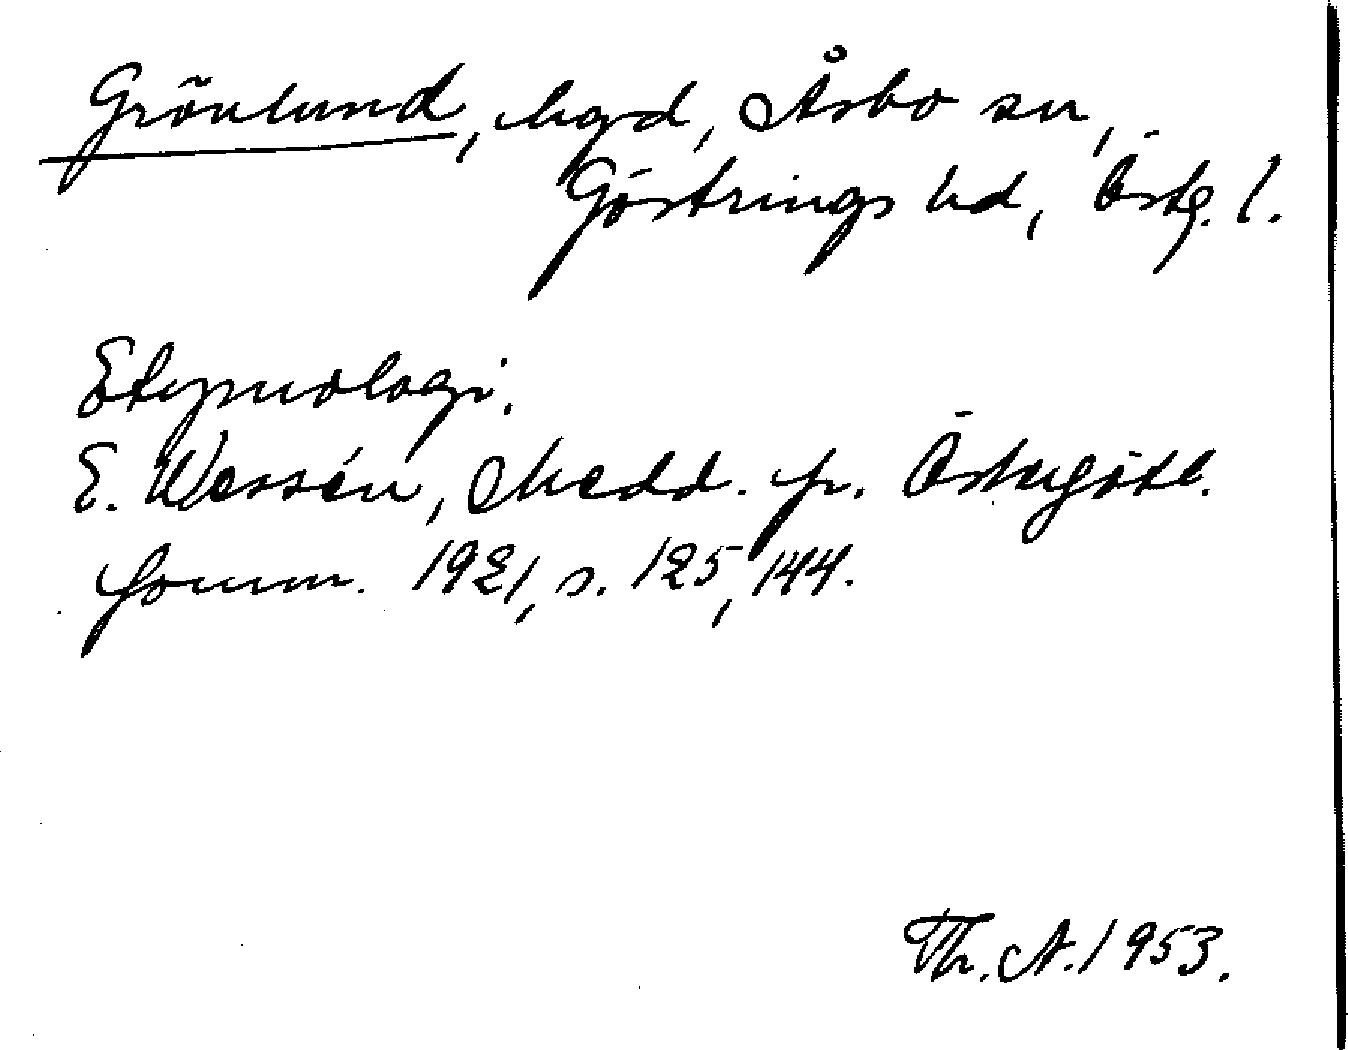 Grönlund, hgd, Åsbo sn,
Göstrings hd, Östg. l.
Etymologi.
E. Wessén, Medd. fr. Östergötl.
fornm. 1921, s. 125, 144.
Th. A. 1953.